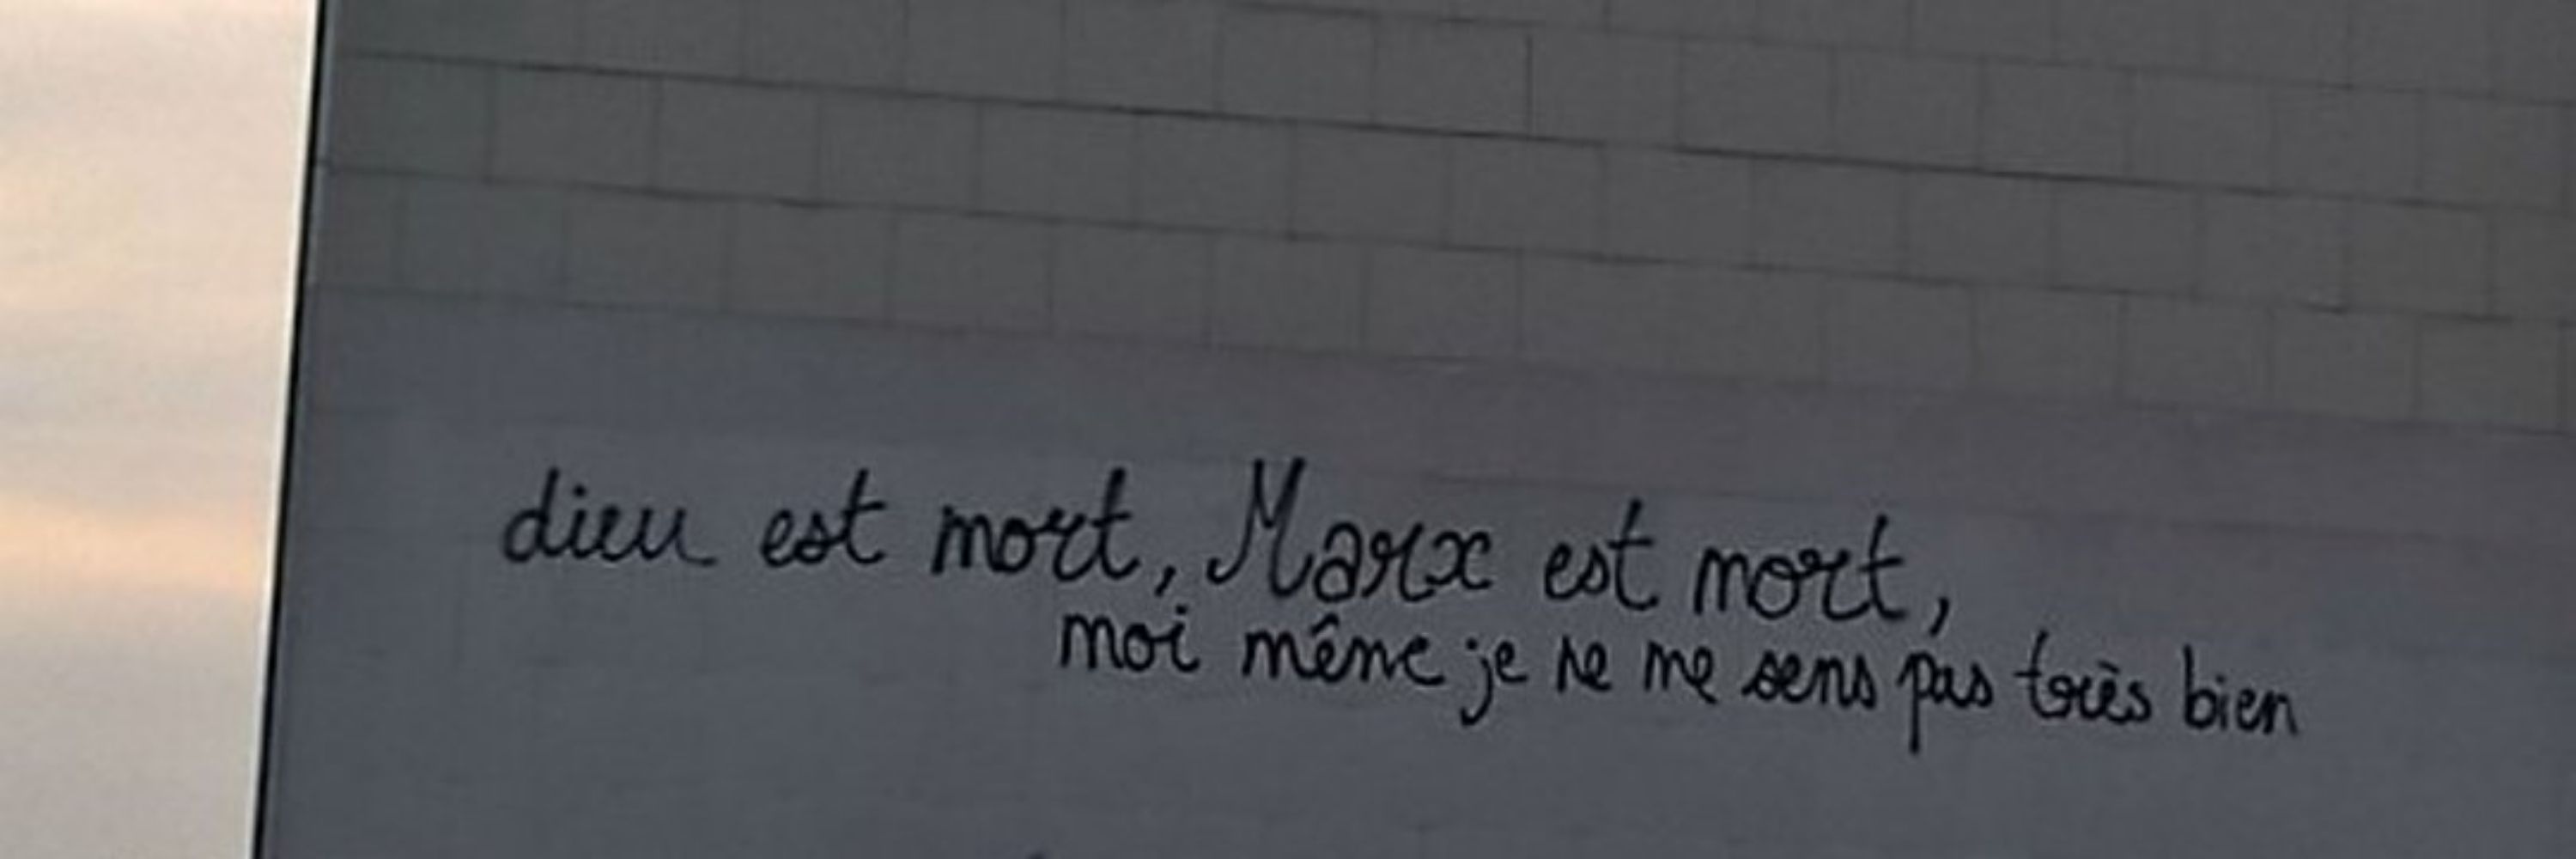 dieu est mort, Marx est mort,
moi même je ne me sens pas très bien